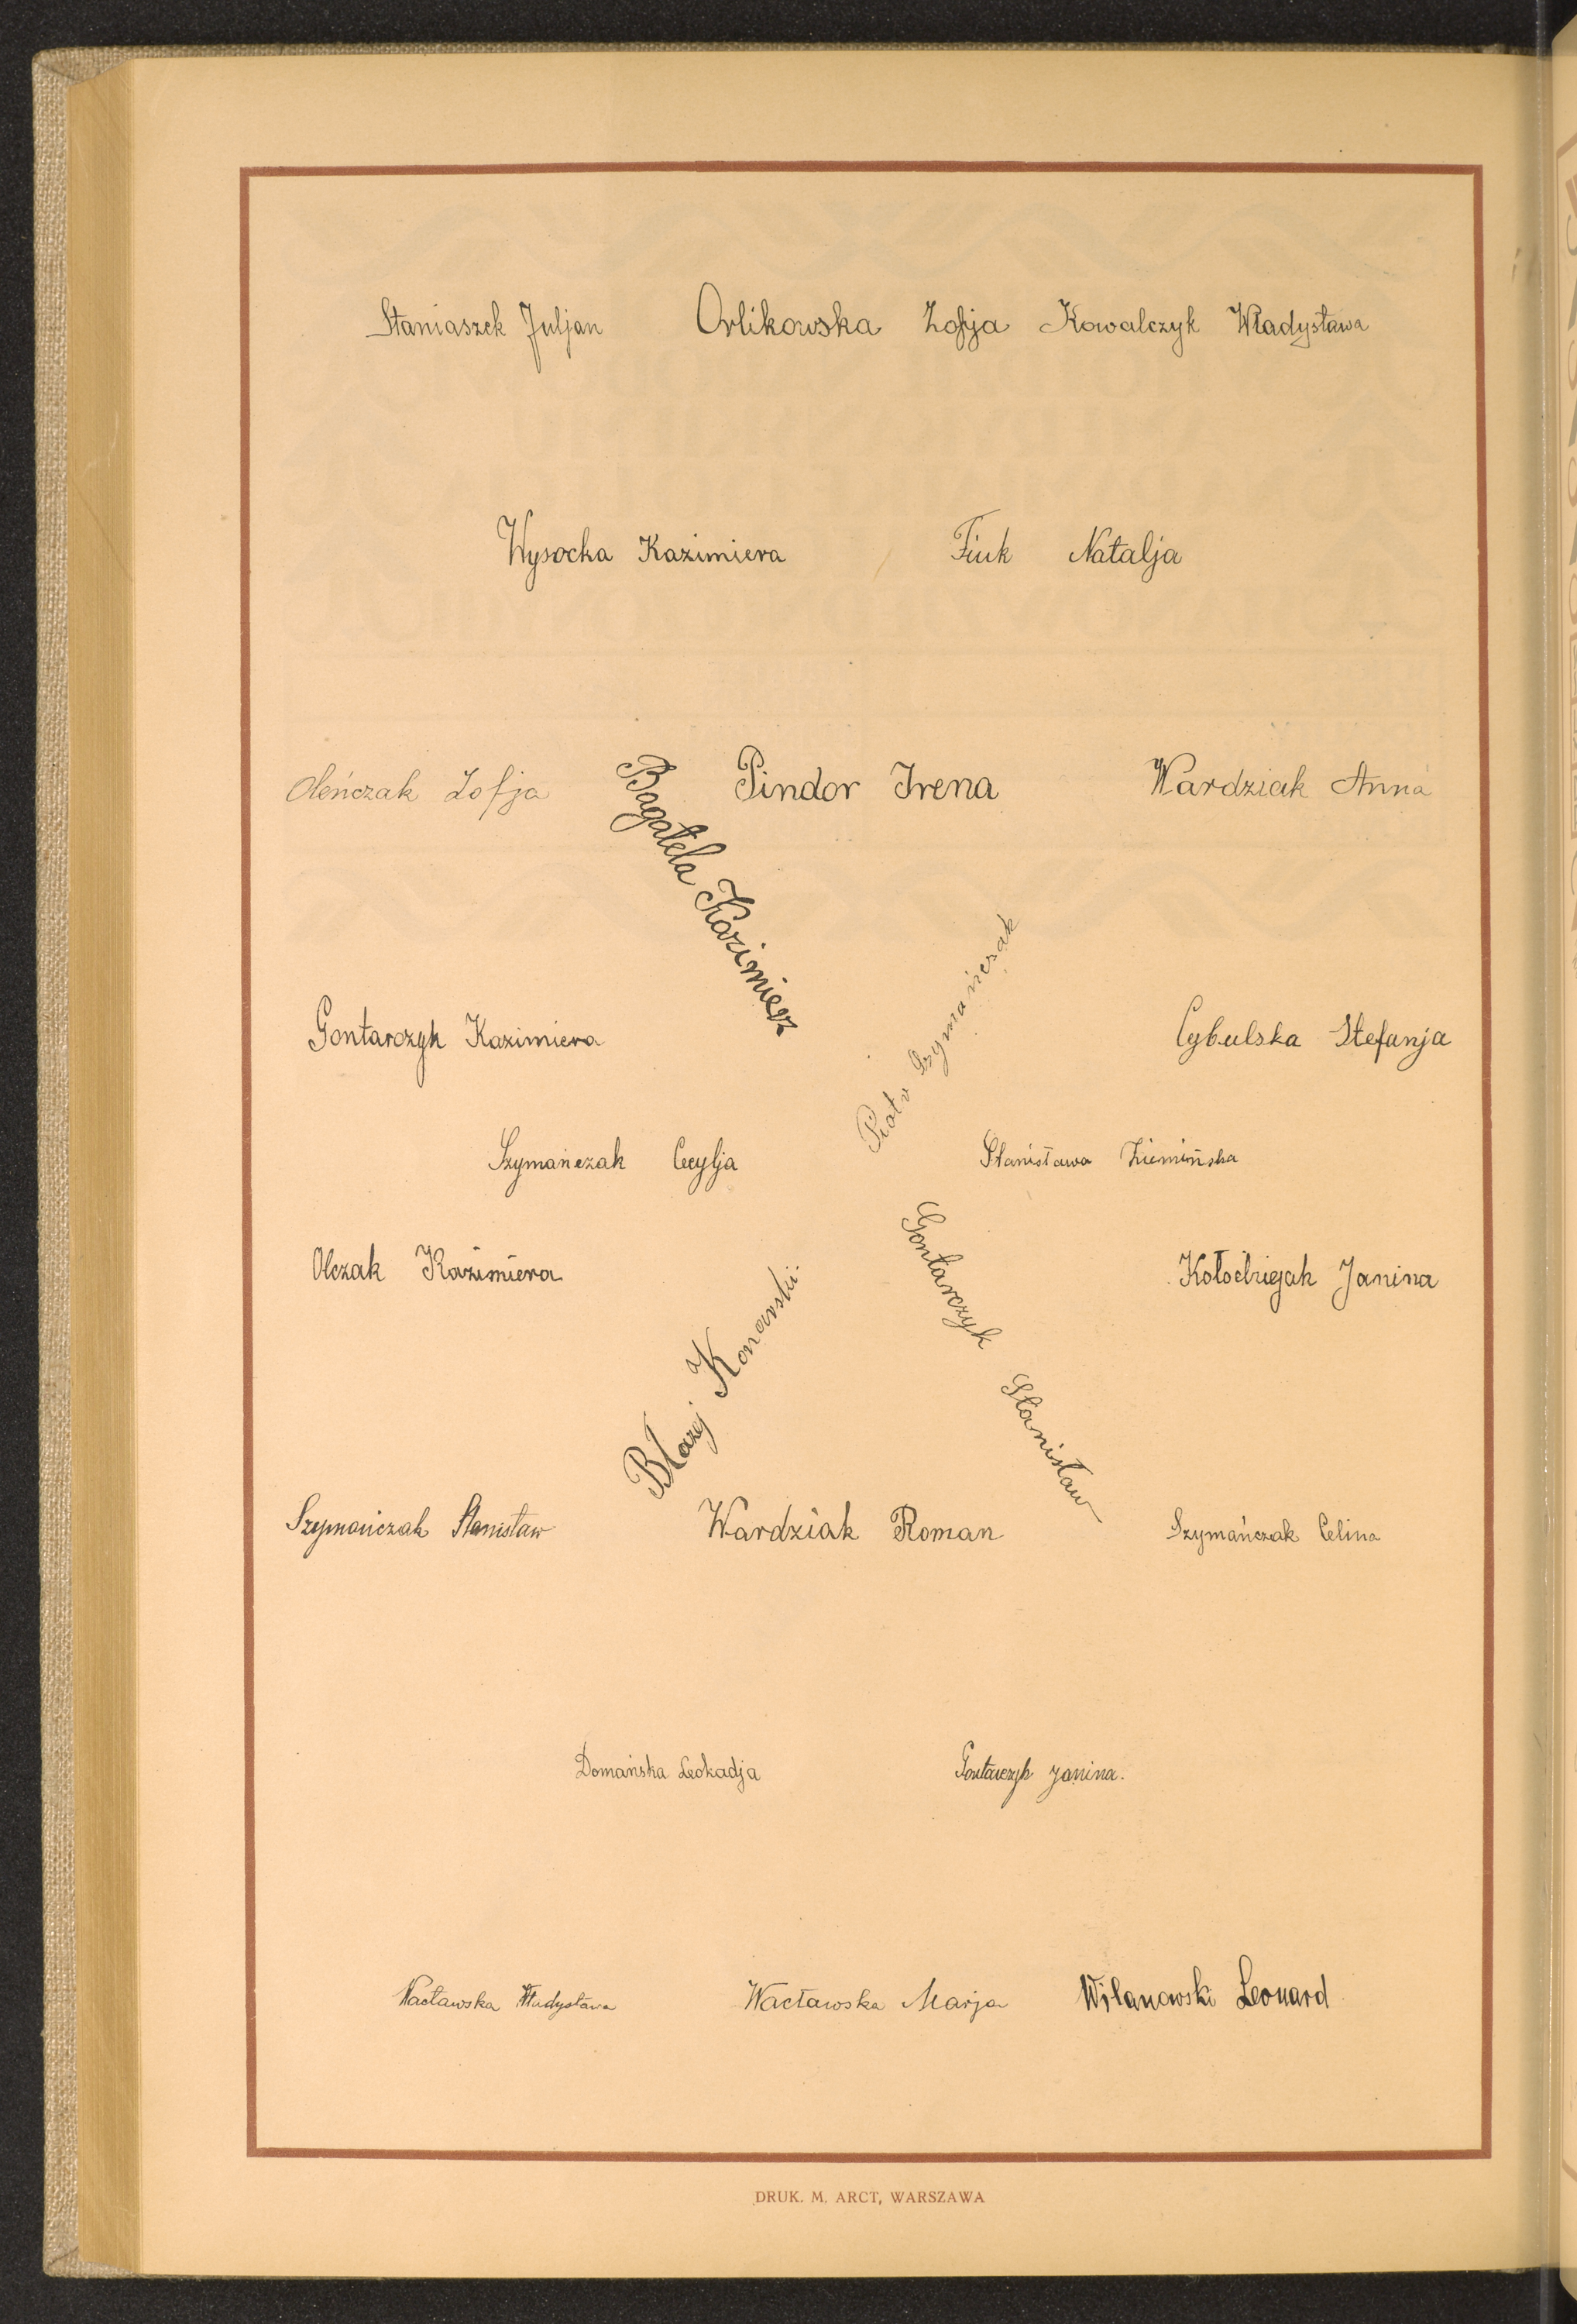 Staniaszek Juljan Orlikowska Zofja Kowalczyk Władysława
Wysocka Kazimiera Fiuk Natalja
Oleńczak Zofja Pindor Irena Wardziak Anna
Bagatela Kazimierz
Piotr Szymańczak
Gontarczyk Kazimiera Cybulska Stefanja
Szymańczak Cecylja Stanisława Ziemińska
Olczak Kazimiera Kołodziejak Janina
Błażej Konarski
Gontarczyk Stanisław
Szymańczak Stanisław Wardziak Roman Szymańczak Celina
Domańska Leokadja Gontarczyk Janina.
Wacławska Władysława Wacławska Marja Wilanowski Leonard
DRUK. M. ARCT, WARSZAWA